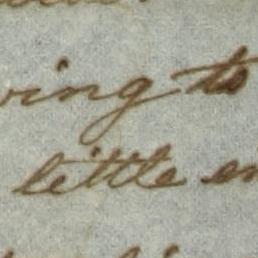 ving to
little en